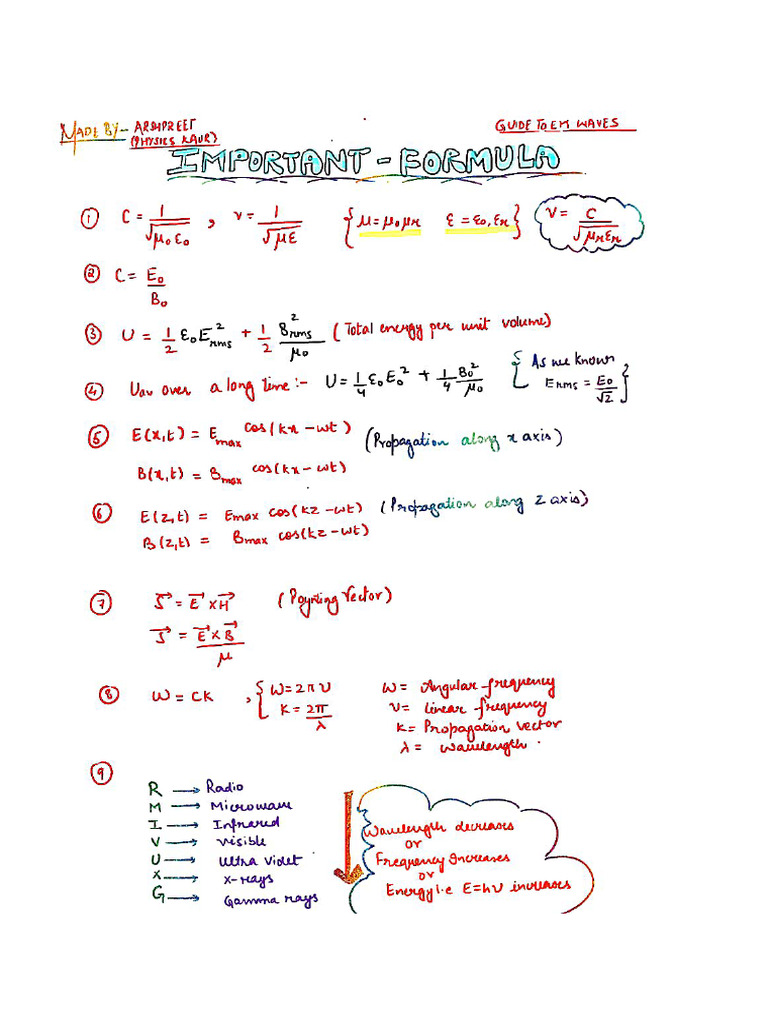 MADE BY - ARSHPREET GUIDE TO EM WAVES
(PHYSICS KAUR)
IMPORTANT - FORMULA
① C = 1/√μ₀ε₀ , v = 1/√με {μ = μ₀μr ε = ε₀.εr} v = C/√μrεr
② C = E₀/B₀
③ U = 1/2 ε₀E²rms + 1/2 B²rms/μ₀ (Total energy per unit volume)
④ Uav over a long time :- U = 1/4 ε₀E₀² + 1/4 B₀²/μ₀ {As we known Erms = E₀/√2}
⑤ E(x,t) = Emax cos(kx-wt) (Propagation along x axis)
B(x,t) = Bmax cos(kx-wt)
⑥ E(z,t) = Emax cos(kz-wt) (Propagation along z axis)
B(z,t) = Bmax cos(kz-wt)
⑦ S⃗ = E⃗ x H⃗ (Poynting Vector)
S⃗ = E⃗ x B⃗/μ
⑧ W = CK , {W = 2πν K = 2π/λ
W = Angular frequency
ν = linear frequency
K = Propagation vector
λ = wavelength .
⑨
R → Radio
M → Microwave
I → Infrared
V → Visible
U → Ultra Violet
X → X-rays
G → Gamma rays
Wavelength decreases
or
Frequency Increases
or
Energy i.e E=hν increases